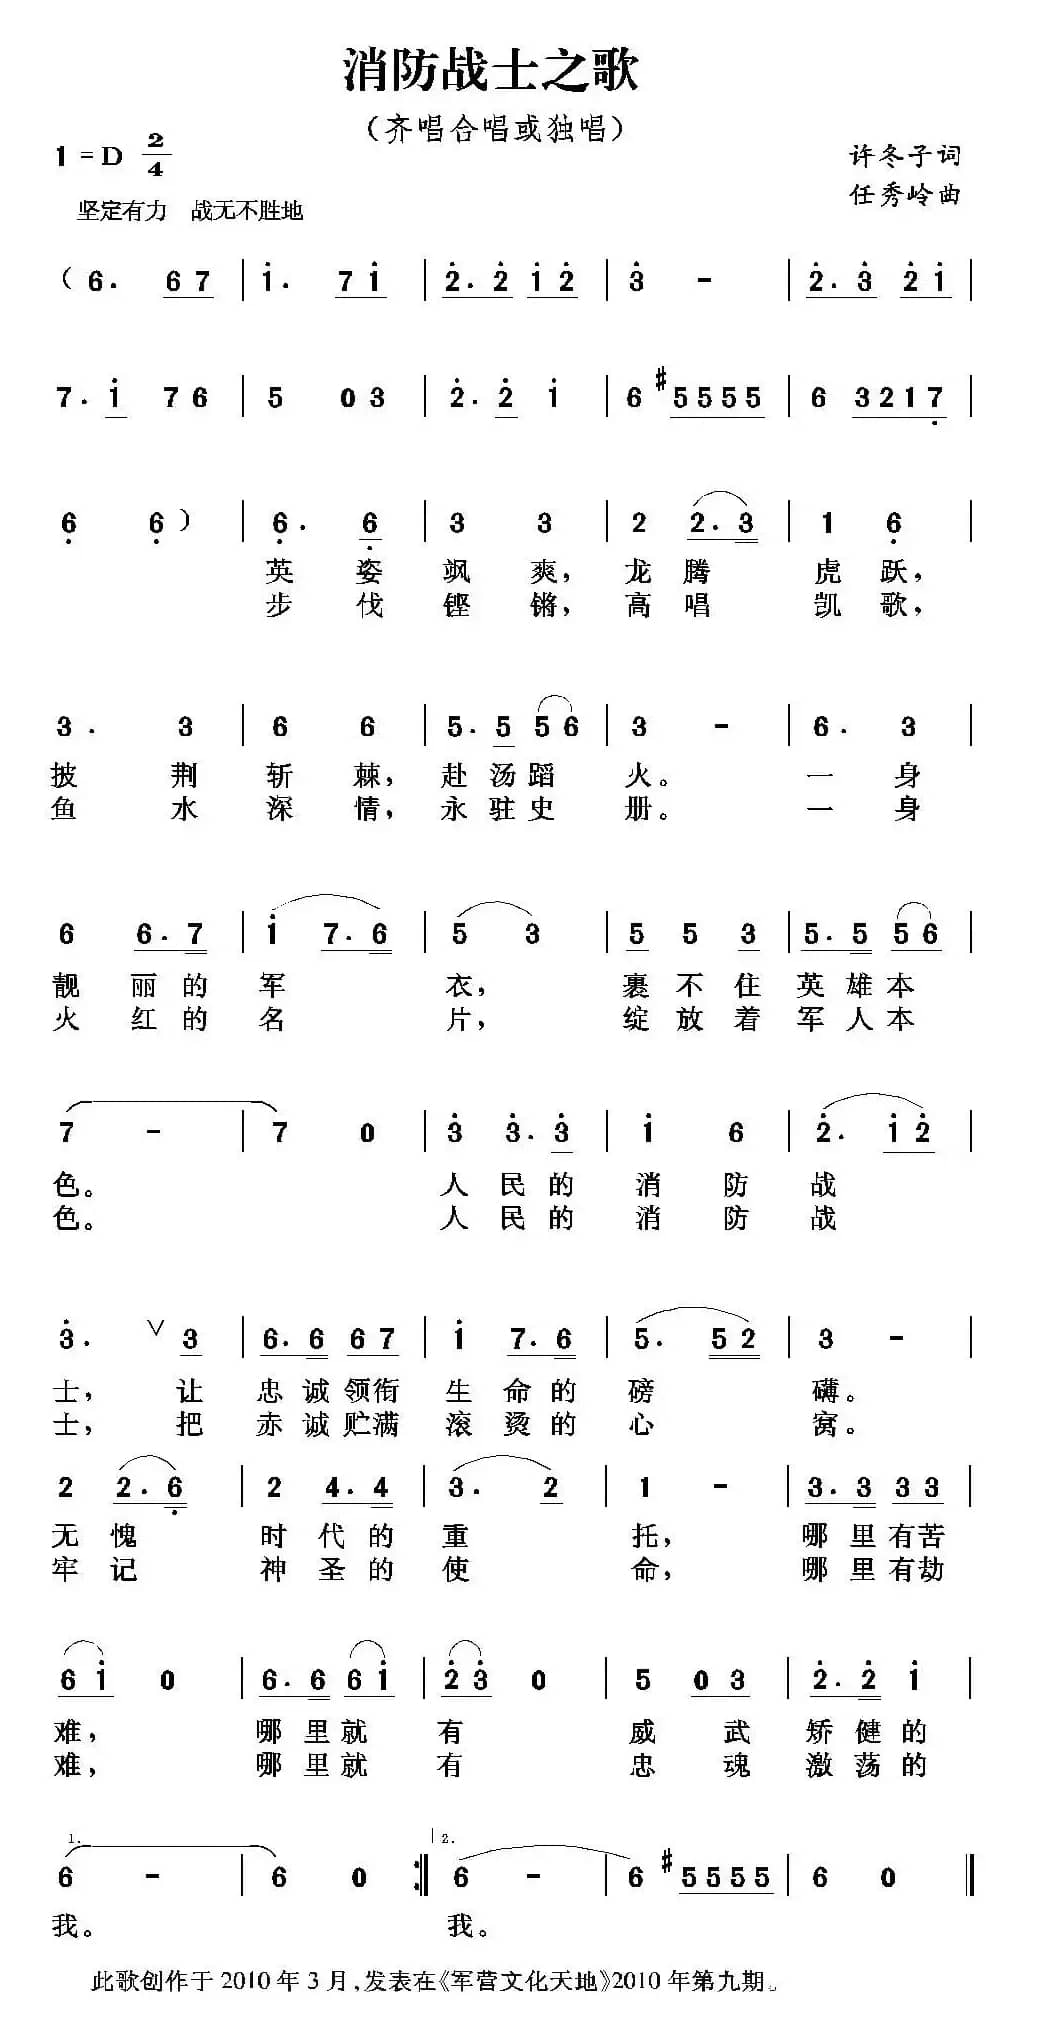 消防战士之歌
（齐唱合唱或独唱）
1=D 2/4
许冬子词
任秀岭曲
坚定有力 战无不胜地
（6. 67 | i. 7i | 2.2 i2 | 3 - | 2.3 2i |
7.i 76 | 5 03 | 2.2 i | 6 #5555 | 6 3217 |
6 6） | 6. 6 | 3 3 | 2 2.3 | 1 6 |
英姿飒爽，龙腾虎跃，
步伐铿锵，高唱凯歌，
3. 3 | 6 6 | 5.5 56 | 3 - | 6. 3 |
披荆斩棘，赴汤蹈火。一身
鱼水深情，永驻史册。一身
6 6.7 | i 7.6 | 5 3 | 5 5 3 | 5.5 56 |
靓丽的军衣，裹不住英雄本
火红的名片，绽放着军人本
7 - | 7 0 | 3 3.3 | i 6 | 2. i2 |
色。人民的消防战
色。人民的消防战
3. ∨ 3 | 6.6 67 | i 7.6 | 5. 52 | 3 - |
士，让忠诚领衔生命的磅礴。
士，把赤诚贮满滚烫的心窝。
2 2.6 | 2 4.4 | 3. 2 | 1 - | 3.3 33 |
无愧时代的重托，哪里有苦
牢记神圣的使命，哪里有劫
6i 0 | 6.6 6i | 23 0 | 5 03 | 2.2 i |
难，哪里就有威武矫健的
难，哪里就有忠魂激荡的
1. 2.
6 - | 6 0 :| 6 - | 6 #5555 | 6 0 ‖
我。我。
此歌创作于2010年3月，发表在《军营文化天地》2010年第九期。